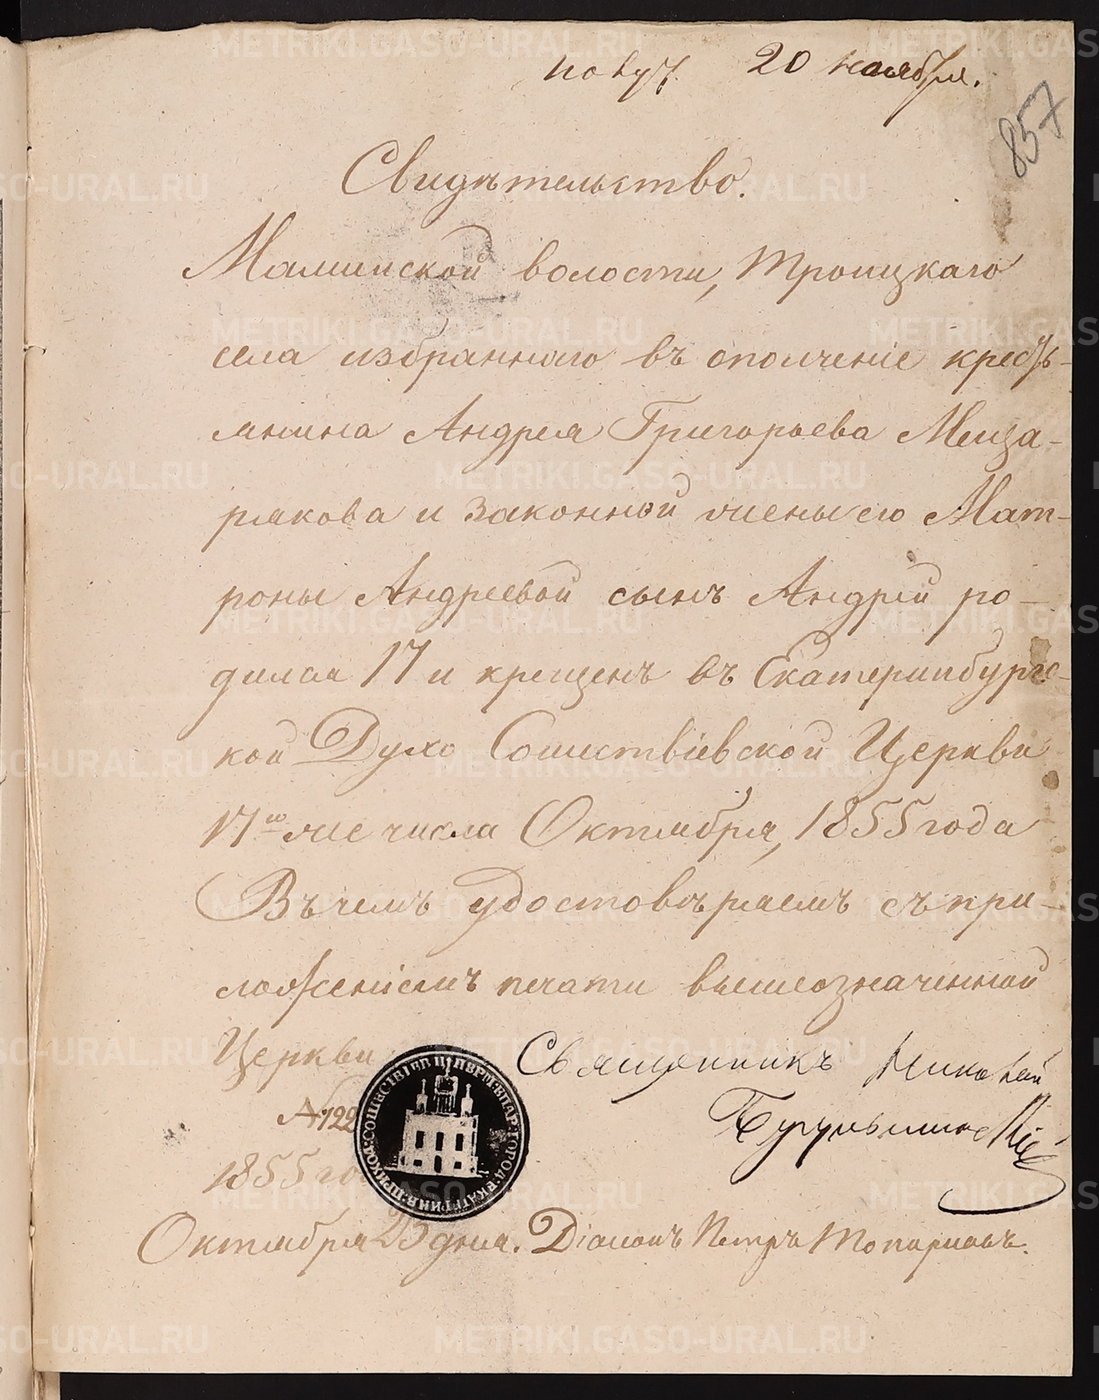 получ. 20 ноября.
857
Свидѣтельство.
Маминской волости, Троицкаго
села избраннаго въ ополченіе кресть-
янина Андрея Григорьева Меща-
рякова и законной жены его Мат-
роны Андреевой сынъ Андрей ро-
дился 17 и крещенъ въ Екатеринбургс-
кой Духо Сошествіевской Церкви
17го же числа Октября, 1855 года
Въ чемъ удостовѣряемъ съ при-
ложеніемъ печати вышеозначенной
Церкви Священникъ Николай
№ 122
1855 го
Октября 23 дня. Діаконъ Петръ Топорковъ.